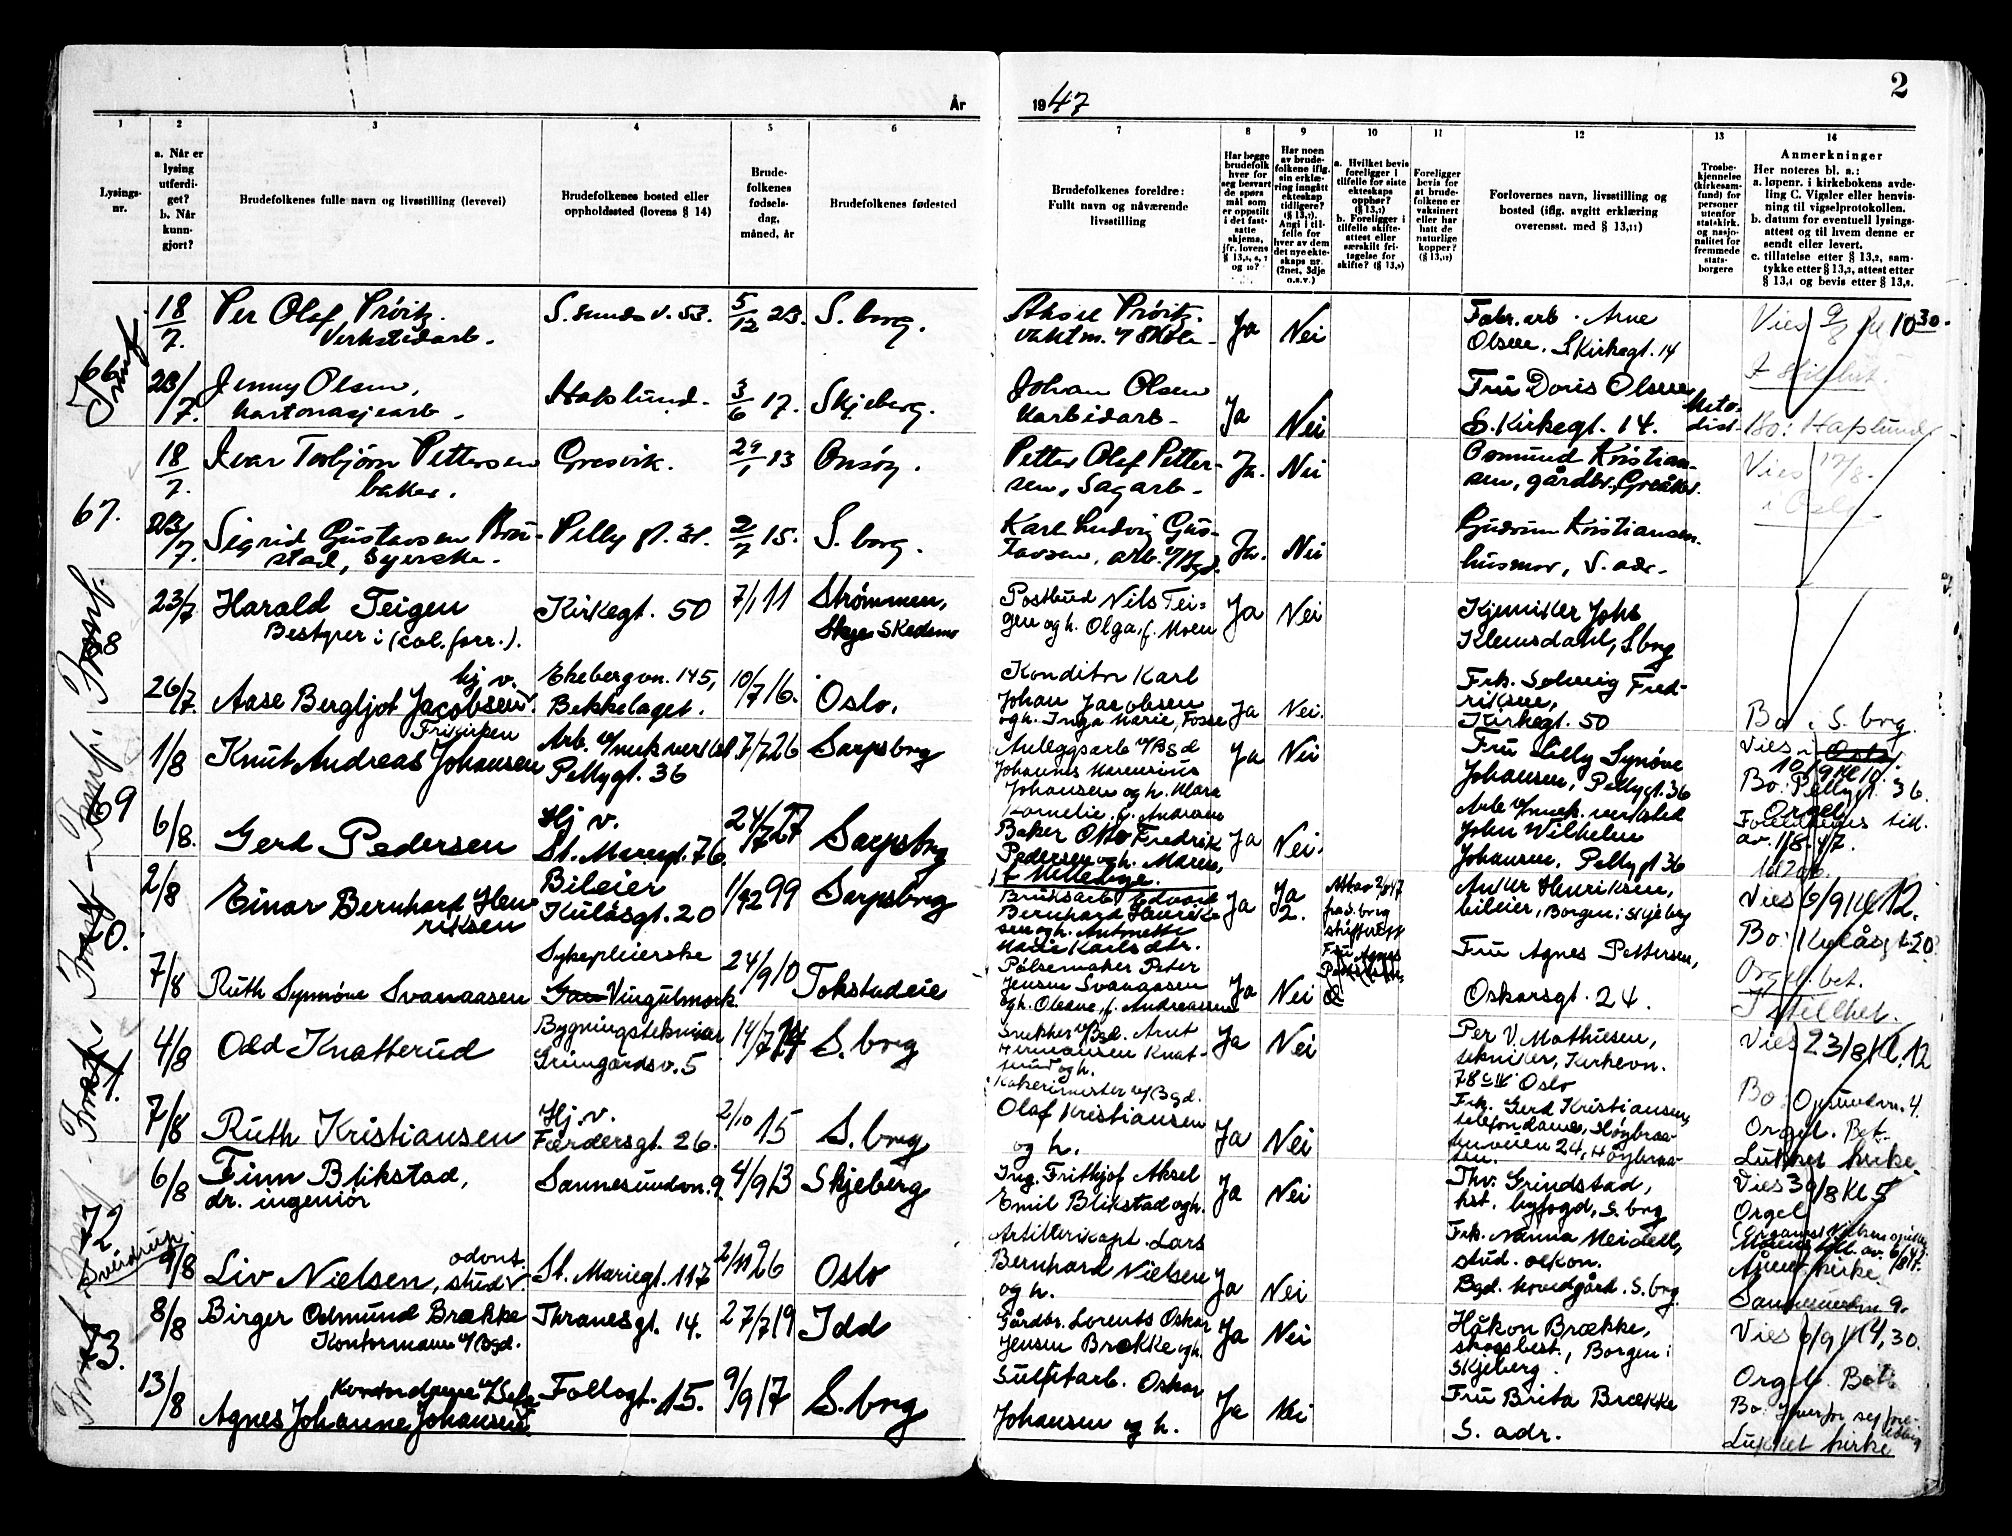 2
År 1947
1 2 3 4 5 6 7 8 9 10 11 12 13 14
Lysings-
nr.
a. Når er
lysing
utferdi-
get?
b. Når
kunn-
gjort?
Brudefolkenes fulle navn og livsstilling (levevei)
Brudefolkenes bosted eller
oppholdssted (lovens § 14)
Brude-
folkenes
fødsels-
dag,
måned, år
Brudefolkenes fødested
Brudefolkenes foreldre:
Fullt navn og nåværende
livsstilling
Har begge
brudefolk
hver for
seg besvart
de spørs
mål som
er oppstilt
i det fast-
satte
skjema,
jfr. lovens
Har noen
av brude-
folkene iflg.
sin erklæ-
ring inngått
ekteskap
tidligere?
(§ 13,7).
Angi i til-
felle for
hver av dem
det nye ekte-
skaps nr.
(2net, 3dje
o.s.v.)
a. Hvilket bevis
foreligger i
tilfelle for siste
ekteskaps
opphør?
b. Foreligger i
tilfelle skifte-
attest eller
særskilt fri-
tagelse for
skifte?
Foreligger
bevis for
at brude-
folkene er
vaksinert
eller har
hatt de
naturlige
kopper?
Forlovernes navn, livsstilling og
bosted (iflg. avgitt erklæring
overensst. med § 13,11)
Trosbe-
kjennelse
(kirkesam-
fund) for
personer
utenfor
statskirk.
og nasjo-
nalitet for
fremmede
stats-
borgere
Anmerkninger
Her noteres bl. a.:
a. løpenr. i kirkebokens avde-
ling C. Vigsler eller henvis-
ning til vigselprotokollen.
b. datum for eventuell lysings-
attest og til hvem denne er
sendt eller levert.
c. tillatelse etter § 13,2, sam-
tykke etter § 13,3, attest etter
§ 13,4 og bevis etter § 13,8.
66
18/7. Per Olaf Prøitz. S. sunds v. 53. 5/12 23. S. borg. Aksel Prøitz. Ja Nei Fabr. arb. Arne Vies 9/8 kl 10 30.
Verkstedarb. vaktm. v/ skole Olsen. S Kirkegt. 14
23/7. Jenny Olsen, Hafslund. 3/6 17. Skjeberg. Johan Olsen Ja Nei Fru Doris Olsen Meto-
kartonasjearb. Karbidarb. S. Kirkegt. 14. dist. Bo: Hafslund
67.
18/7. Ivar Torbjørn Pettersen Gresvik. 29/1 13 Onsøy. Petter Olaf Petter- Ja. Nei Osmund Kristian- Vies 17/8.
baker. sen, Sagarb. sen, gårdbr., Greåker. i Oslo
23/7. Sigrid Gustavsen Bru- Pellygt. 31. 2/7 15. S. borg. Karl Ludvig Gus- Ja. Nei Gudrun Kristiansen.
stad, syerske. tavsen, arb. v/ Bgd. husmor, S. adr.
68
23/7 Harald Teigen Kirkegt. 50 7/1 11 Strømmen, Postbud Nils Tei- Ja Nei Kjemiker Johs
Bestyrer i (col. forr.). Skedsmo gen og h. Olga, f. Moen Klemsdahl, S. borg
26/7. hj. v. Ekebergvn. 145, 10/7 16. Oslo. Konditor Karl Ja Nei. Frk. Solveig Fred-
Aase Bergljot Jacobsen Bekkelaget. Johan Jacobsen riksen, Bo i S. borg.
og h. Inga Marie, Fosse Kirkegt. 50
69
1/8 Knut Andreas Johansen Arb. v/ mek verksted 7/7 26 Sarpsborg Anleggsarb v/ Bgd Ja Nei Fru Lilly Synøve Vies i Oslo.
Pellygt. 36 Johannes Johansen, Pellygt. 36 10/9 kl 10.
Johansen og h. Klara Bo: Pellygt. 36.
Kornelie, f. Andersen
6/8. Gerd Pedersen Hj. v. 24/7 27 Sarpsborg Baker Otto Fredrik Ja Nei. Arb. v/ mek. verksted Orgel
St. Mariegt. 76. Pedersen og h. Maren, John Wilhelm Foreldrenes till.
Johansen, Pellygt 36 av. 1/8.47.
70.
2/8 Einar Bernhard Hen Bileier 1/12 99 Sarpsborg Bruksarb. Edvard Ja Ja Anker Henriksen, Vies 6/9 kl 12.
riksen Kulåsgt. 20 Bernhard Henrik- 2. bileier, Borgen i Skjeberg
sen og h. Antonette Bo: Kulåsgt. 20
Marie Karlsdtr.
7/8 Ruth Synnøve Svanaasen Sykepleierske 24/9 10 Tokstadeie Pølsemaker Peter Ja Nei Fru Agnes Pettersen, Orgel. bet.
Vingulmork. Jensen Svanaasen Oskarsgt. 24. I stillhet.
og h. Oleane, f. Andreassen
71
4/8 Odd Knatterud Bygningstekniker 14/7 14 S. borg Snekker v/ Bgd. Arnt Ja Nei Per V. Mathiesen, Vies 23/8 kl. 12
Grimgårdsv. 5 Hermansen Knat- tekniker, Kirkevn.
terud og h. 78 Oslo Bo: Opsundvn. 4.
7/8 Ruth Kristiansen Hj. v. 2/10 15 S. borg Kokerimester v/ Bgd. Ja Nei Frk. Gerd Kristiansen, Orgel. Bet.
Færdersgt. 26. Olaf Kristiansen telefondame, Høybraa- Lukket kirke.
og h. tenveien 24, Høybraa-
ten.
72
6/8 Finn Blikstad, Sannesundvn. 9. 4/9 13 Skjeberg Ing. Frithjof Aksel Ja Nei Thv. Grindstad, Vies 30/8 kl 5
dr. ingeniør Emil Blikstad og h. kst. byfogd, S. borg Orgel
Sverdrup.
9/8 Liv Nielsen, odont. stud. St. Mariegt. 117 2/11 26 Oslo Artillerikapt. Lars Ja Nei Frk. Nanna Meidell,
Bernhard Nielsen stud. oekon. Åpen kirke.
og h. Bgd. hovedgård. S. borg. Sannesundvn 9.
73.
8/8 Birger Osmund Brække Thranesgt. 14. 27/7 19 Idd Gårdbr. Lorents Oskar Ja Nei Håkon Brække, Vies 6/9 kl 4,30.
Kontormann v/ Bgd. Jensen Brække og h. skogsbest., Borgen i
Skjeberg. Orgel. Bet.
13/8 Kontordame Follogt. 15. 9/9 17 S. borg Sulfitarb. Oskar Ja Nei Fru Brita Brække
Agnes Johanne Johansen Johansen og h. S. adr. Lukket kirke